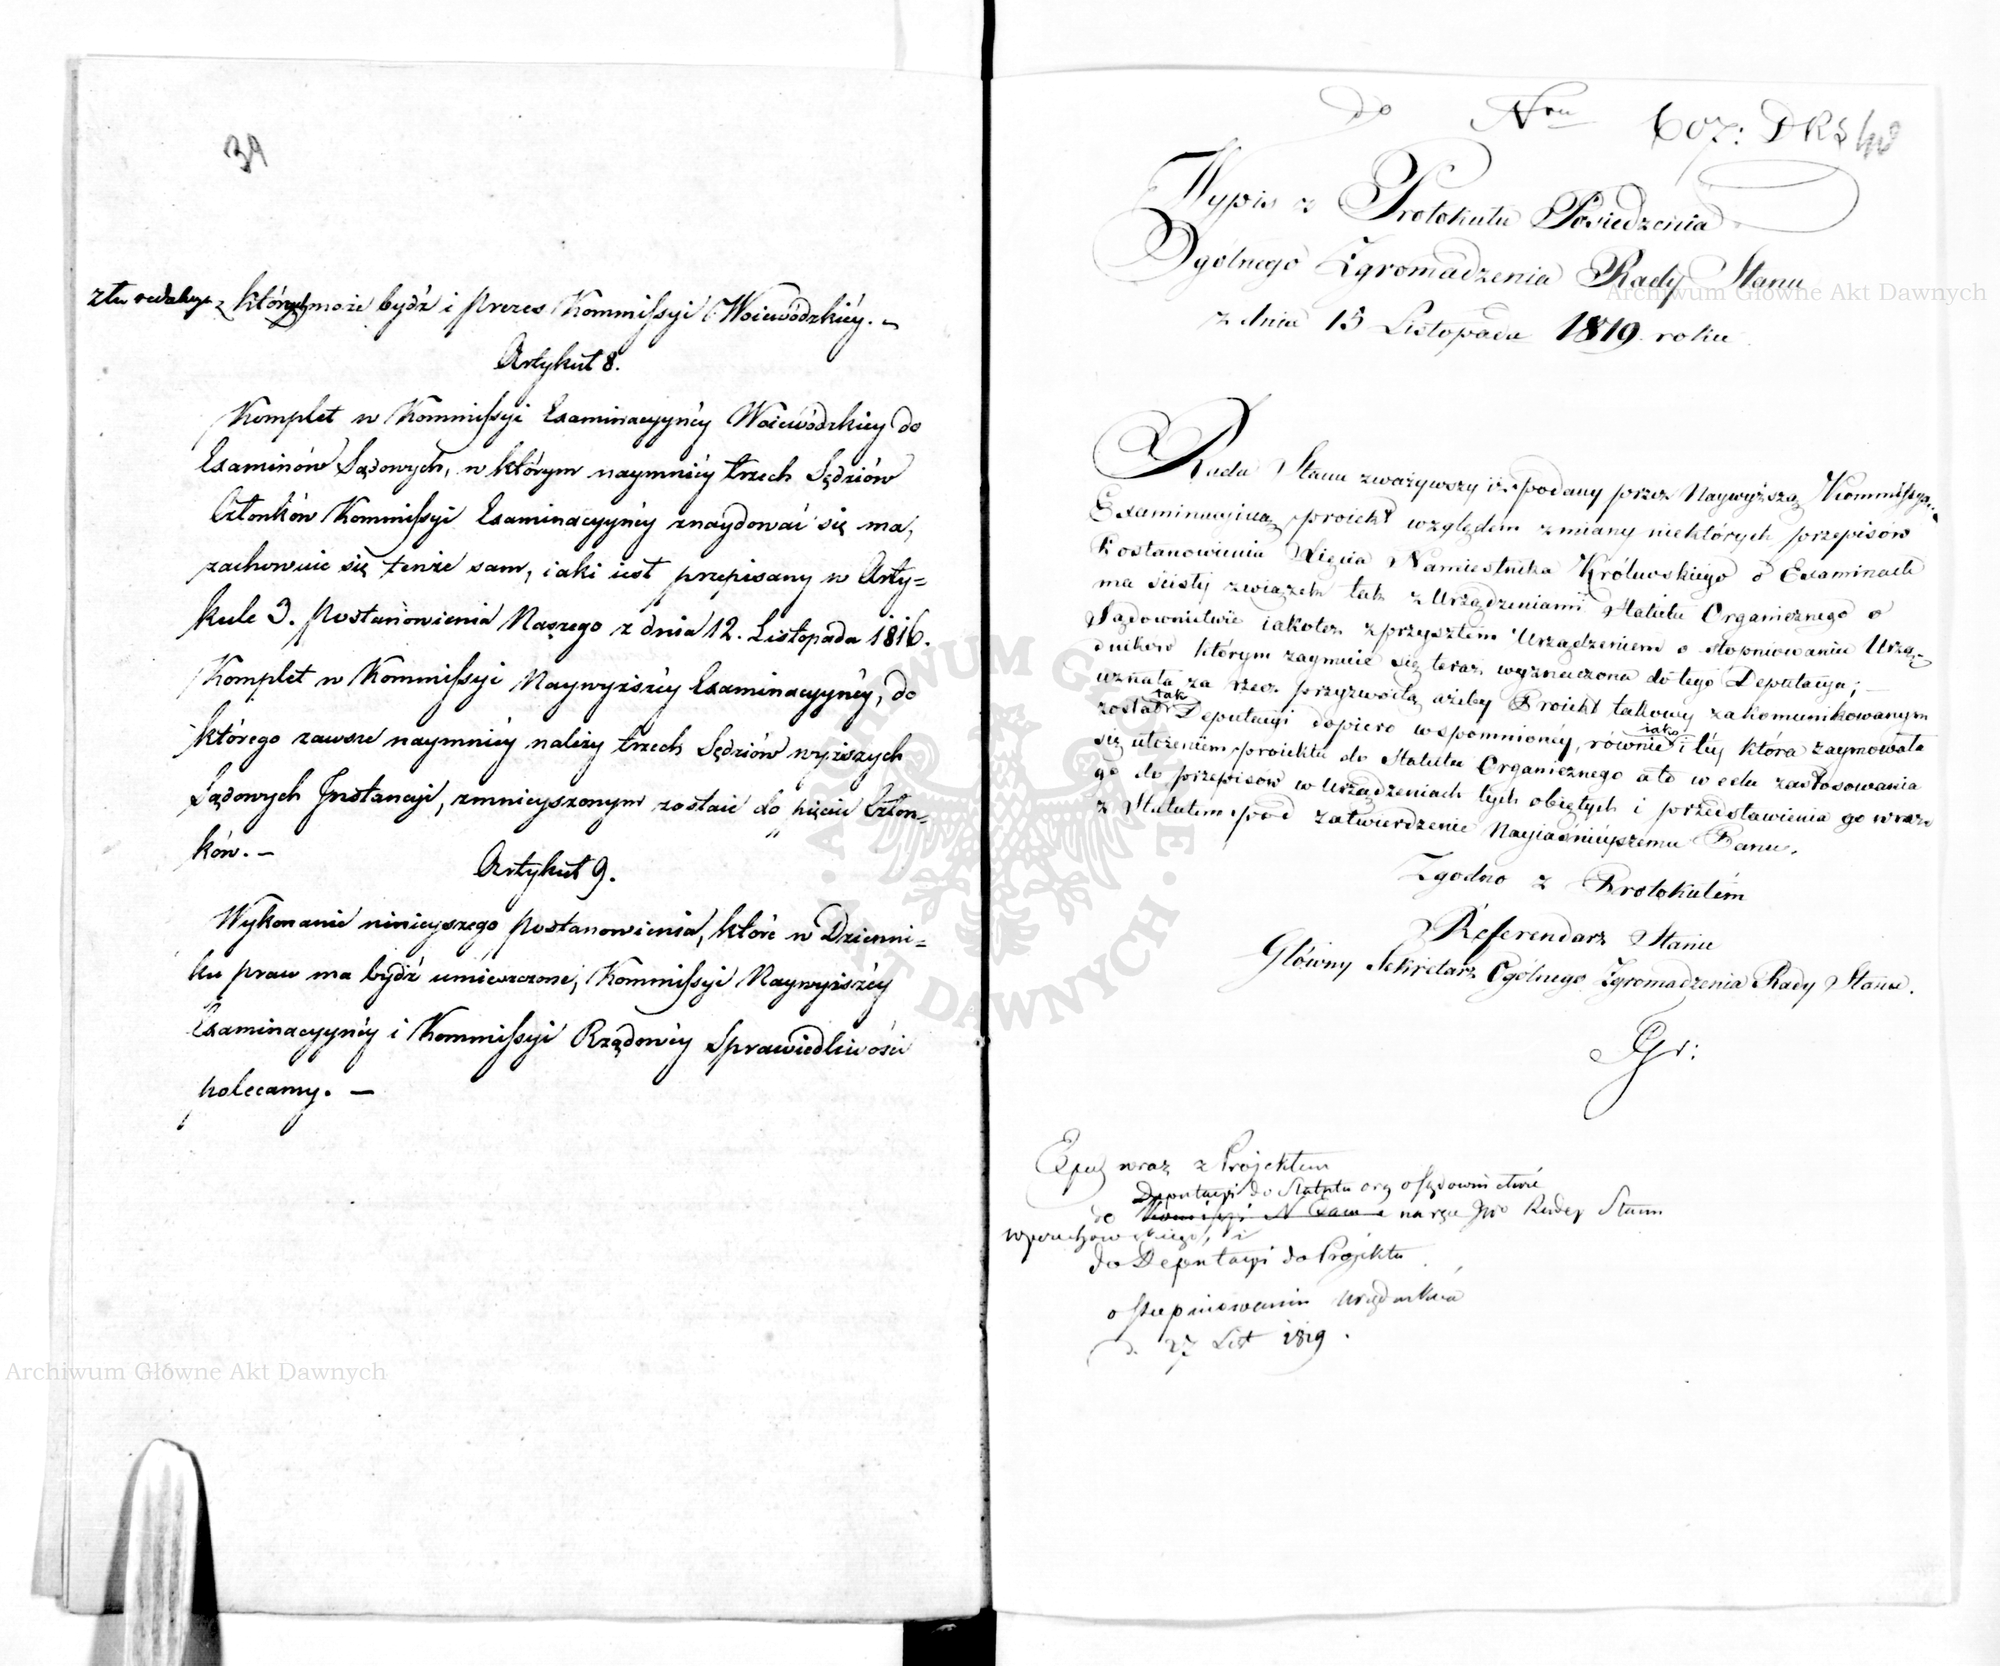 39
zła redakcya z których może bydź i Prezes Kommissyi Woiewódzkiéy. –
Artykuł 8.
Komplet w Kommissyi Examinacyynéy Woiewódzkiéy do
Examinów Sądowych, w którym naymniéy trzech Sędziów
Członków Kommissyi Examinacyynéy znaydować się ma,
zachowuie się tenże sam, iaki iest przepisany w Arty=
kule 3. Postanowienia Naszego z dnia 12. Listopada 1816.
Komplet w Kommissyi Naywyższéy Examinacyynéy, do
którego zawsze naymniéy należy trzech Sędziów wyższych
Sądowych Instancyi, zmnieyszonym zostaie do pięciu Człon=
ków. –
Artykuł 9.
Wykonanie ninieyszego postanowienia, które w Dzienni=
ku praw ma bydź umieszczone, Kommissyi Naywyższéy
Examinacyynéy i Kommissyi Rządowéy Sprawiedliwości
polecamy. –
do Nru 607: DKS 40
Wypis z Protokułu Posiedzenia
Ogólnego Zgromadzenia Rady Stanu
z dnia 15 Listopada 1819. roku
Rada Stanu zważywszy iż podany przez Naywyższą Kommissyą
Examinacyiną proiekt względem zmiany niektórych przepisów
Postanowienia Xięcia Namiestnika Królewskiego o Examinach
ma ścisły związek tak z Urządzeniami Statutu Organicznego o
Sądownictwie iakoteż z przyszłem Urządzeniem o stopniowaniu Urzę=
dników którym zaymuie się teraz wyznaczona do tego Deputacya; –
uznała za rzecz przyzwoitą ażeby Proiekt takowy zakomunikowanym
został tak Deputacyi dopiero wspomnionéy, równie iako i téy która zaymowała
się ułożeniem proiektu do Statutu Organicznego a to w celu zastosowania
go do przepisów w Urządzeniach tych obiętych i przedstawienia go wraz
z Statutem pod zatwierdzenie Nayiaśnieyszemu Panu.
Zgodno z Protokułem
Referendarz Stanu
Główny Sekretarz Ogólnego Zgromadzenia Rady Stanu.
Gr:
Exped wraz z Projektem
Deputacyi do Statutu org o Sądownictwie
do na ręce Radcy Stanu
i
do Deputacyi do Projektu
o stopniowaniu Urzędników
d. 27 List 1819.
Archiwum Główne Akt Dawnych
Archiwum Główne Akt Dawnych
ARCHIWUM GŁÓWNE AKT DAWNYCH